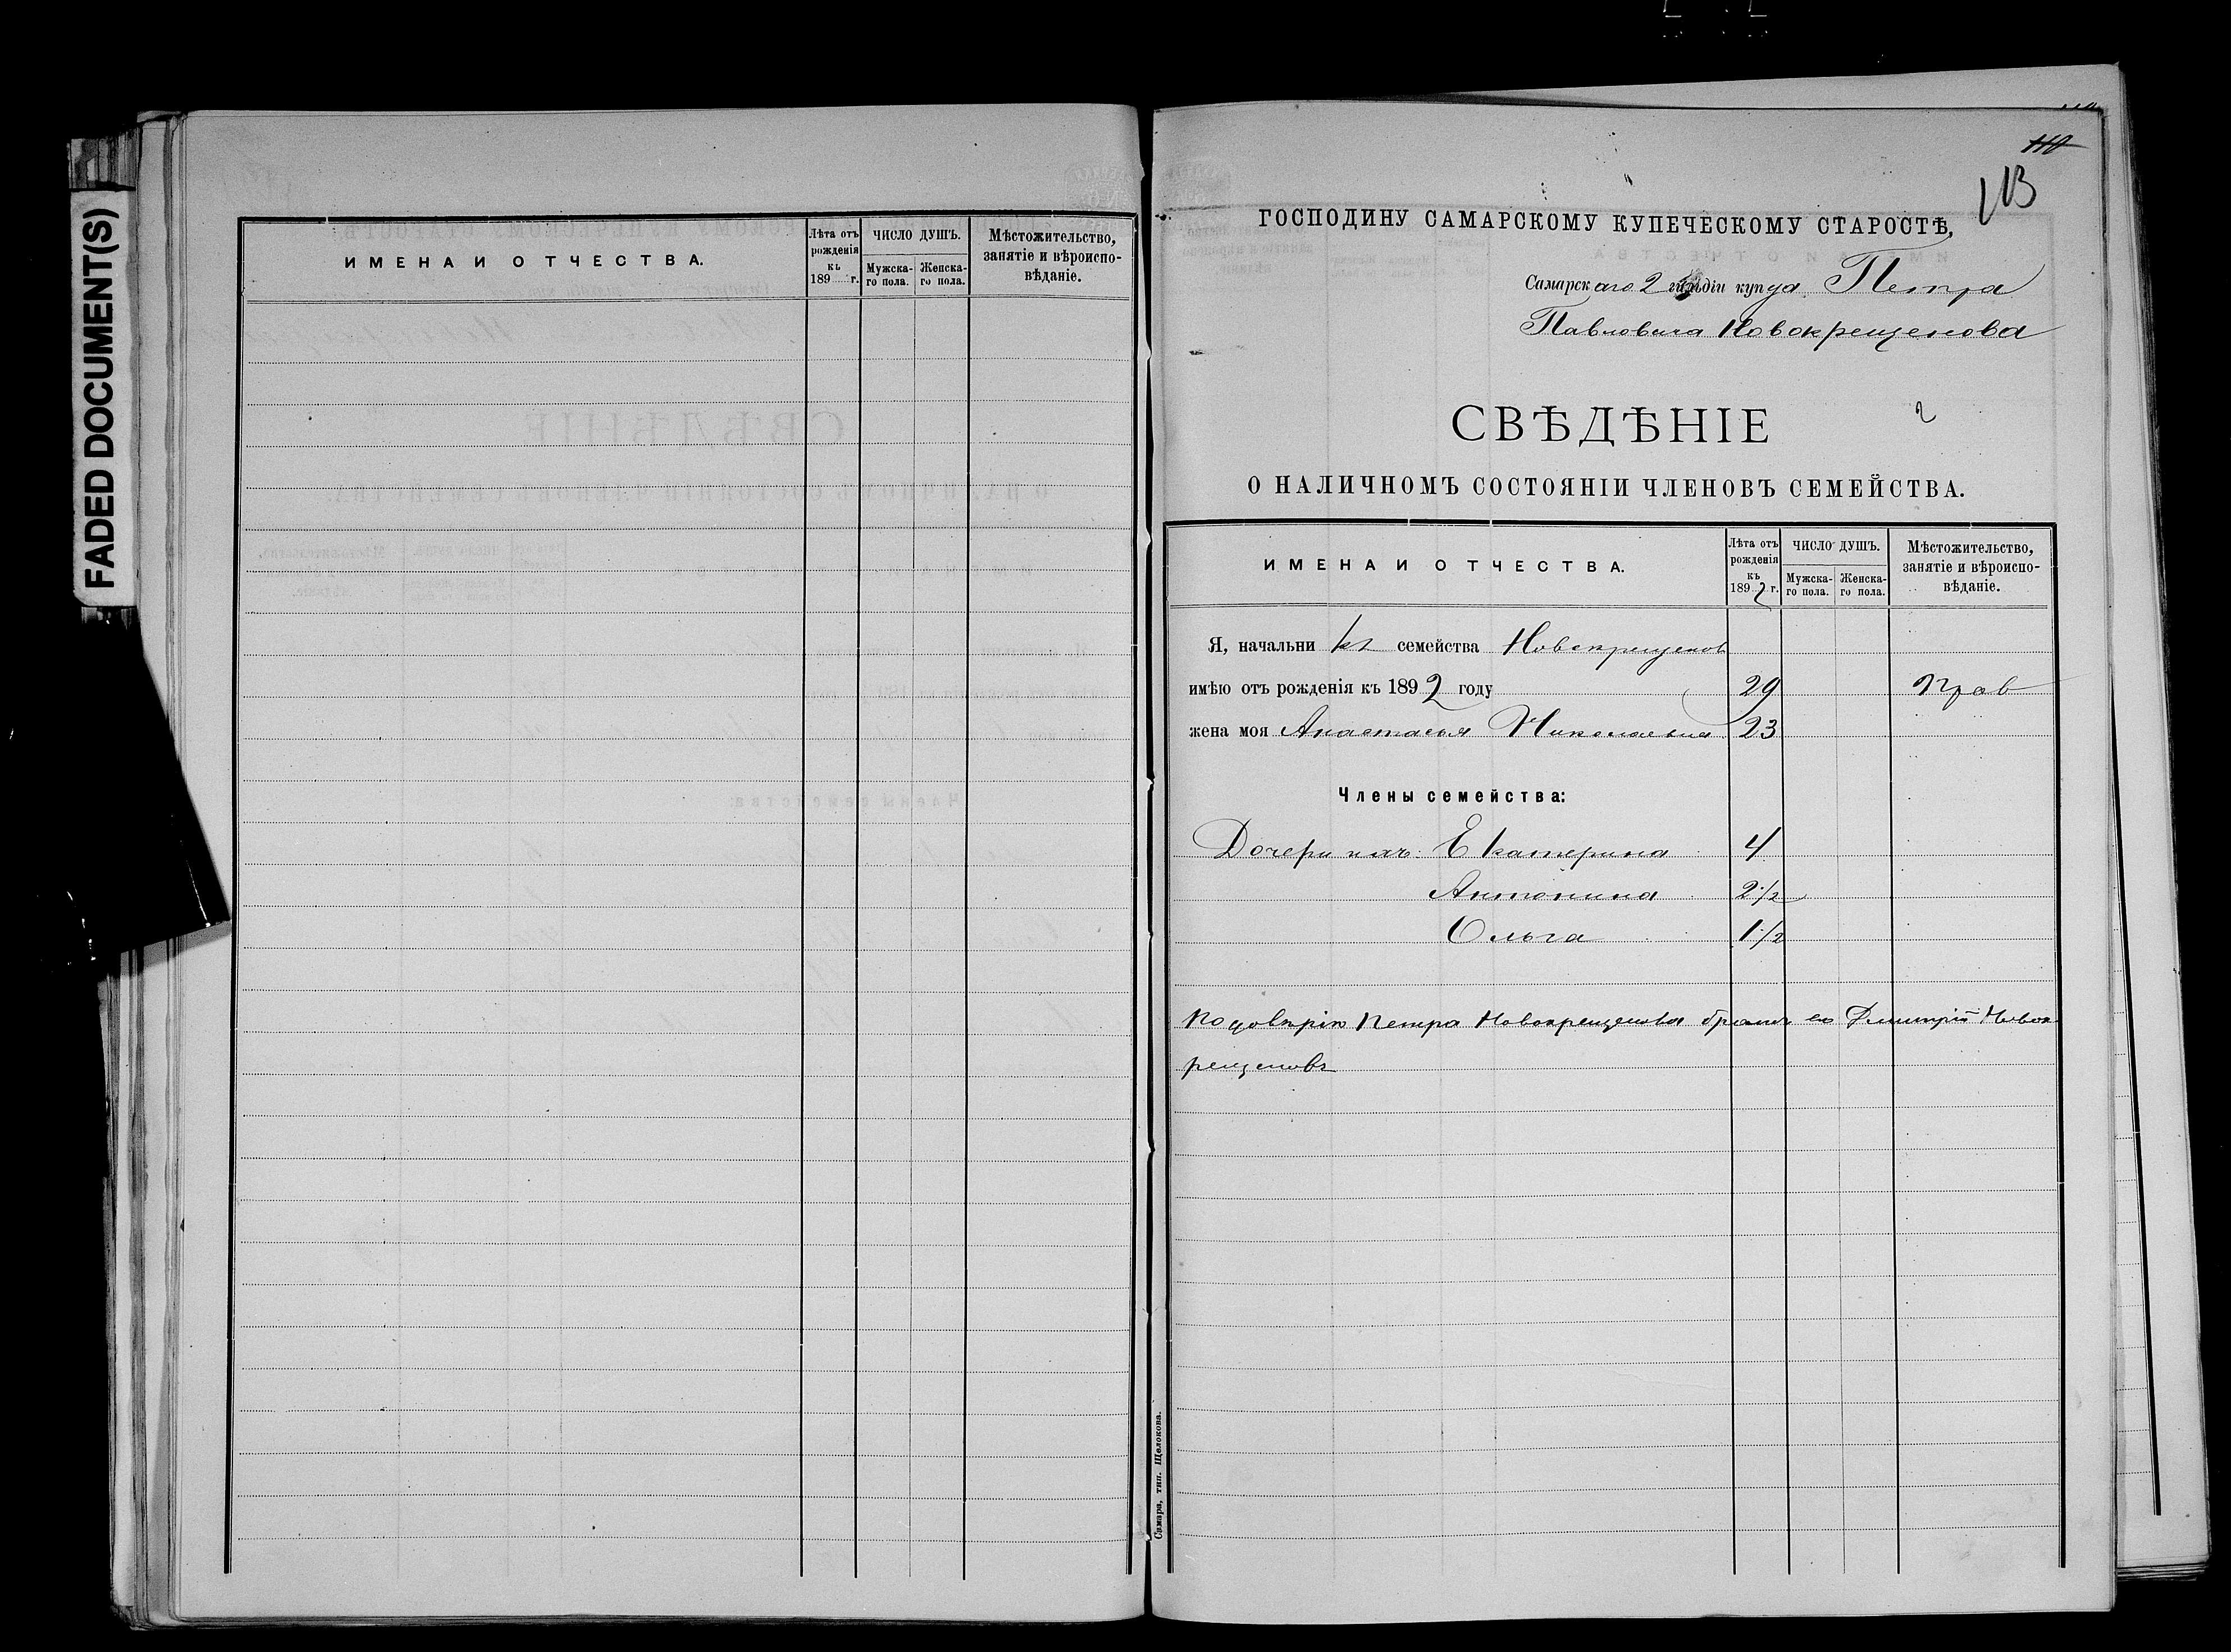 FADED DOCUMENT(S)
ИМЕНА И ОТЧЕСТВА.
Лѣта отъ рожденія къ 189 г.
ЧИСЛО ДУШЪ.
Мужска-го пола.
Женска-го пола.
Мѣстожительство, занятіе и вѣроиспо-вѣданіе.
110
113
ГОСПОДИНУ САМАРСКОМУ КУПЕЧЕСКОМУ СТАРОСТѢ,
Самарскаго 2 гильдіи купца Петра
Павловича Новокрещенова
СВѢДѢНІЕ
О НАЛИЧНОМЪ СОСТОЯНІИ ЧЛЕНОВЪ СЕМЕЙСТВА.
ИМЕНА И ОТЧЕСТВА.
Лѣта отъ рожденія къ 1892 г.
ЧИСЛО ДУШЪ.
Мужска-го пола.
Женска-го пола.
Мѣстожительство, занятіе и вѣроиспо-вѣданіе.
Я, начальникъ семейства Новокрещенов
имѣю отъ рожденія къ 1892 году 29 Прав
жена моя Анастасья Николаевна 23
Члены семейства:
Дочери ихъ: Екатерина 4
Антонина 2 1/2
Ольга 1 1/2
По довѣрію Петра Новокрещенова братъ ео Дмитрій Новок
рещеновъ
Самара, тип. Щелокова.